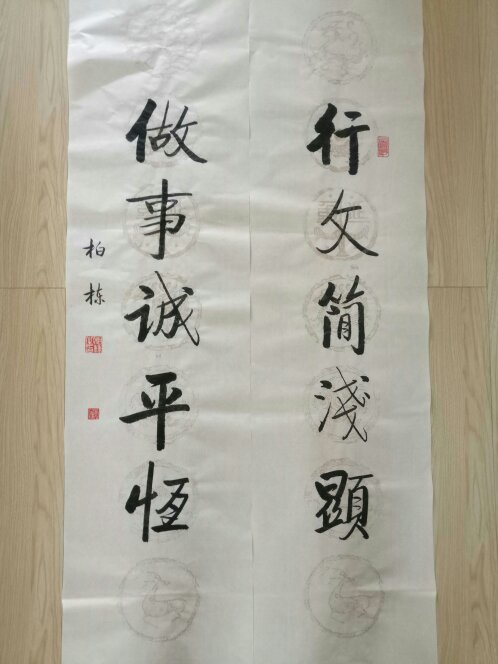 行文简浅顯
做事诚平恆
柏栋